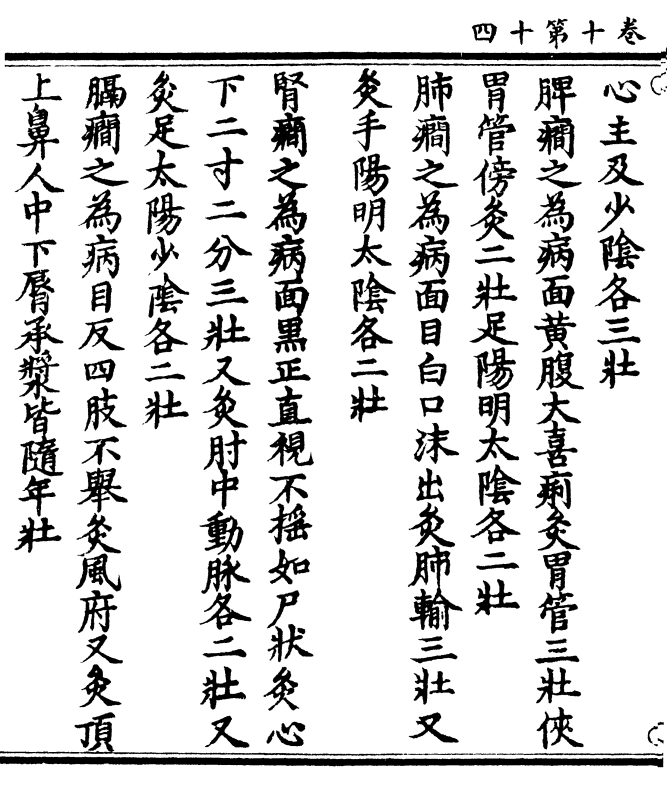 卷十第十四
心主及少陰各三壯
脾癇之為病面黃腹大喜痢灸胃管三壯俠
胃管傍灸二壯足陽明太陰各二壯
肺癇之為病面目白口沫出灸肺輸三壯又
灸手陽明太陰各二壯
腎癇之為病面黑正直視不搖如尸狀灸心
下二寸二分三壯又灸肘中動脈各二壯又
灸足太陽少陰各二壯
膈癇之為病目反四肢不舉灸風府又灸頂
上鼻人中下脣承漿皆隨年壯